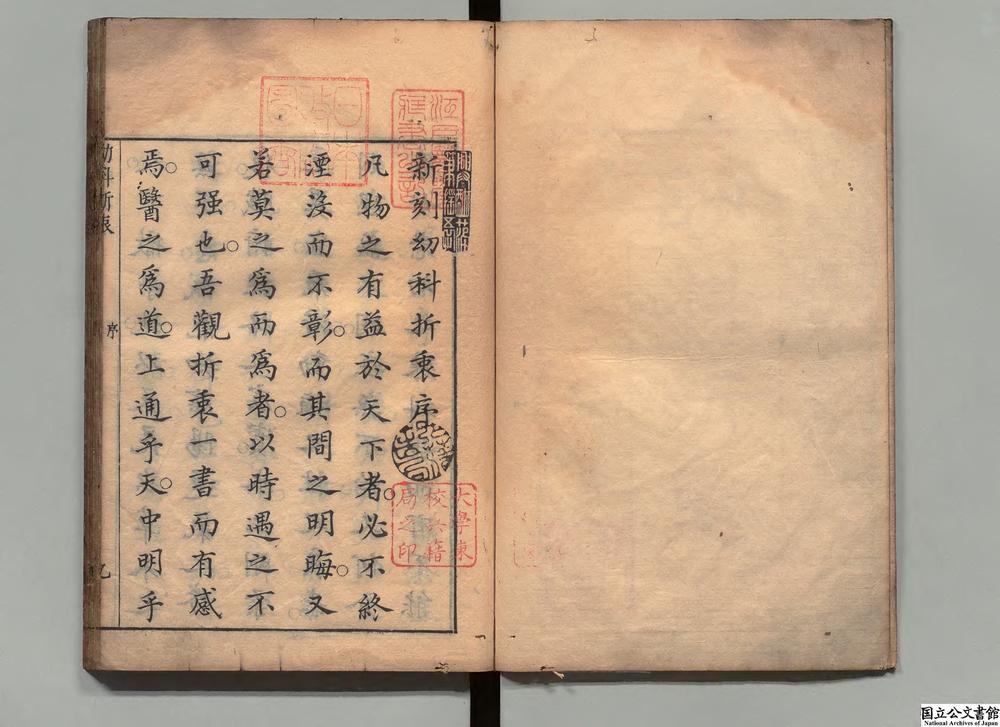 新刻幼科折衷序
凡物之有益於天下者。必不終
湮沒而不彰。而其間之明晦。又
若莫之爲而爲者。以時遇之不
可强也。吾觀折衷一書而有感
焉。醫之爲道。上通乎天。中明乎
幼科折衷
序
乙
大學東
校典籍
局之印
国立公文書館
National Archives of Japan